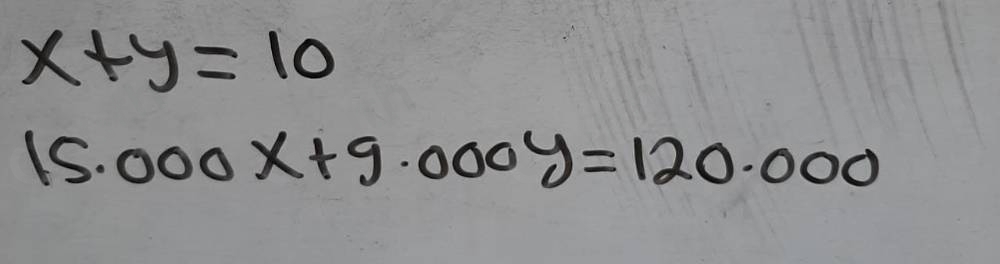 x+y=10
15.000x+9.000y=120.000